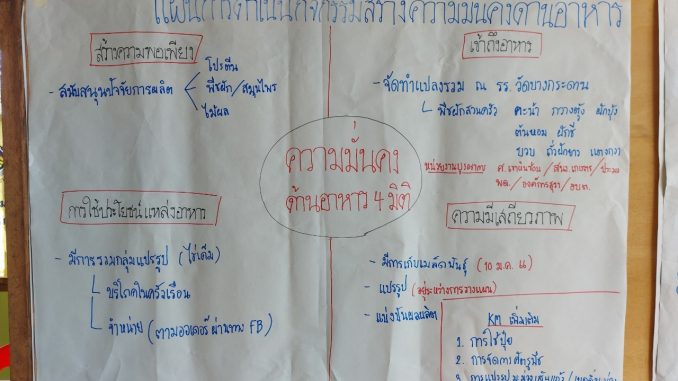 แผนการดำเนินกิจกรรมสร้างความมั่นคงด้านอาหาร
สร้างความพอเพียง
- สนับสนุนปัจจัยการผลิต
โปรตีน
พืชผัก/สมุนไพร
ไม้ผล
เข้าถึงอาหาร
- จัดทำแปลงรวม ณ รร. วัดบางกระดาน
พืชผักสวนครัว คะน้า กวางตุ้ง ผักบุ้ง
ต้นหอม ผักชี
บวบ ถั่วฝักยาว แตงกวา
หน่วยงานบูรณาการ
พอ. / องค์กรสุรา / อบต.
ความมั่นคง
ด้านอาหาร 4 มิติ
การใช้ประโยชน์แหล่งอาหาร
- มีการรวมกลุ่มแปรรูป (ไข่เค็ม)
บริโภคในครัวเรือน
จำหน่าย (ตามออเดอร์ผ่านทาง FB)
ความมีเสถียรภาพ
- มีการเก็บเมล็ดพันธุ์
- แปรรูป (อยู่ระหว่างการวางแผน)
- แบ่งปันผลผลิต
KM เพิ่มเติม
1. การใช้ปุ๋ย
2. การจัดการศัตรูพืช